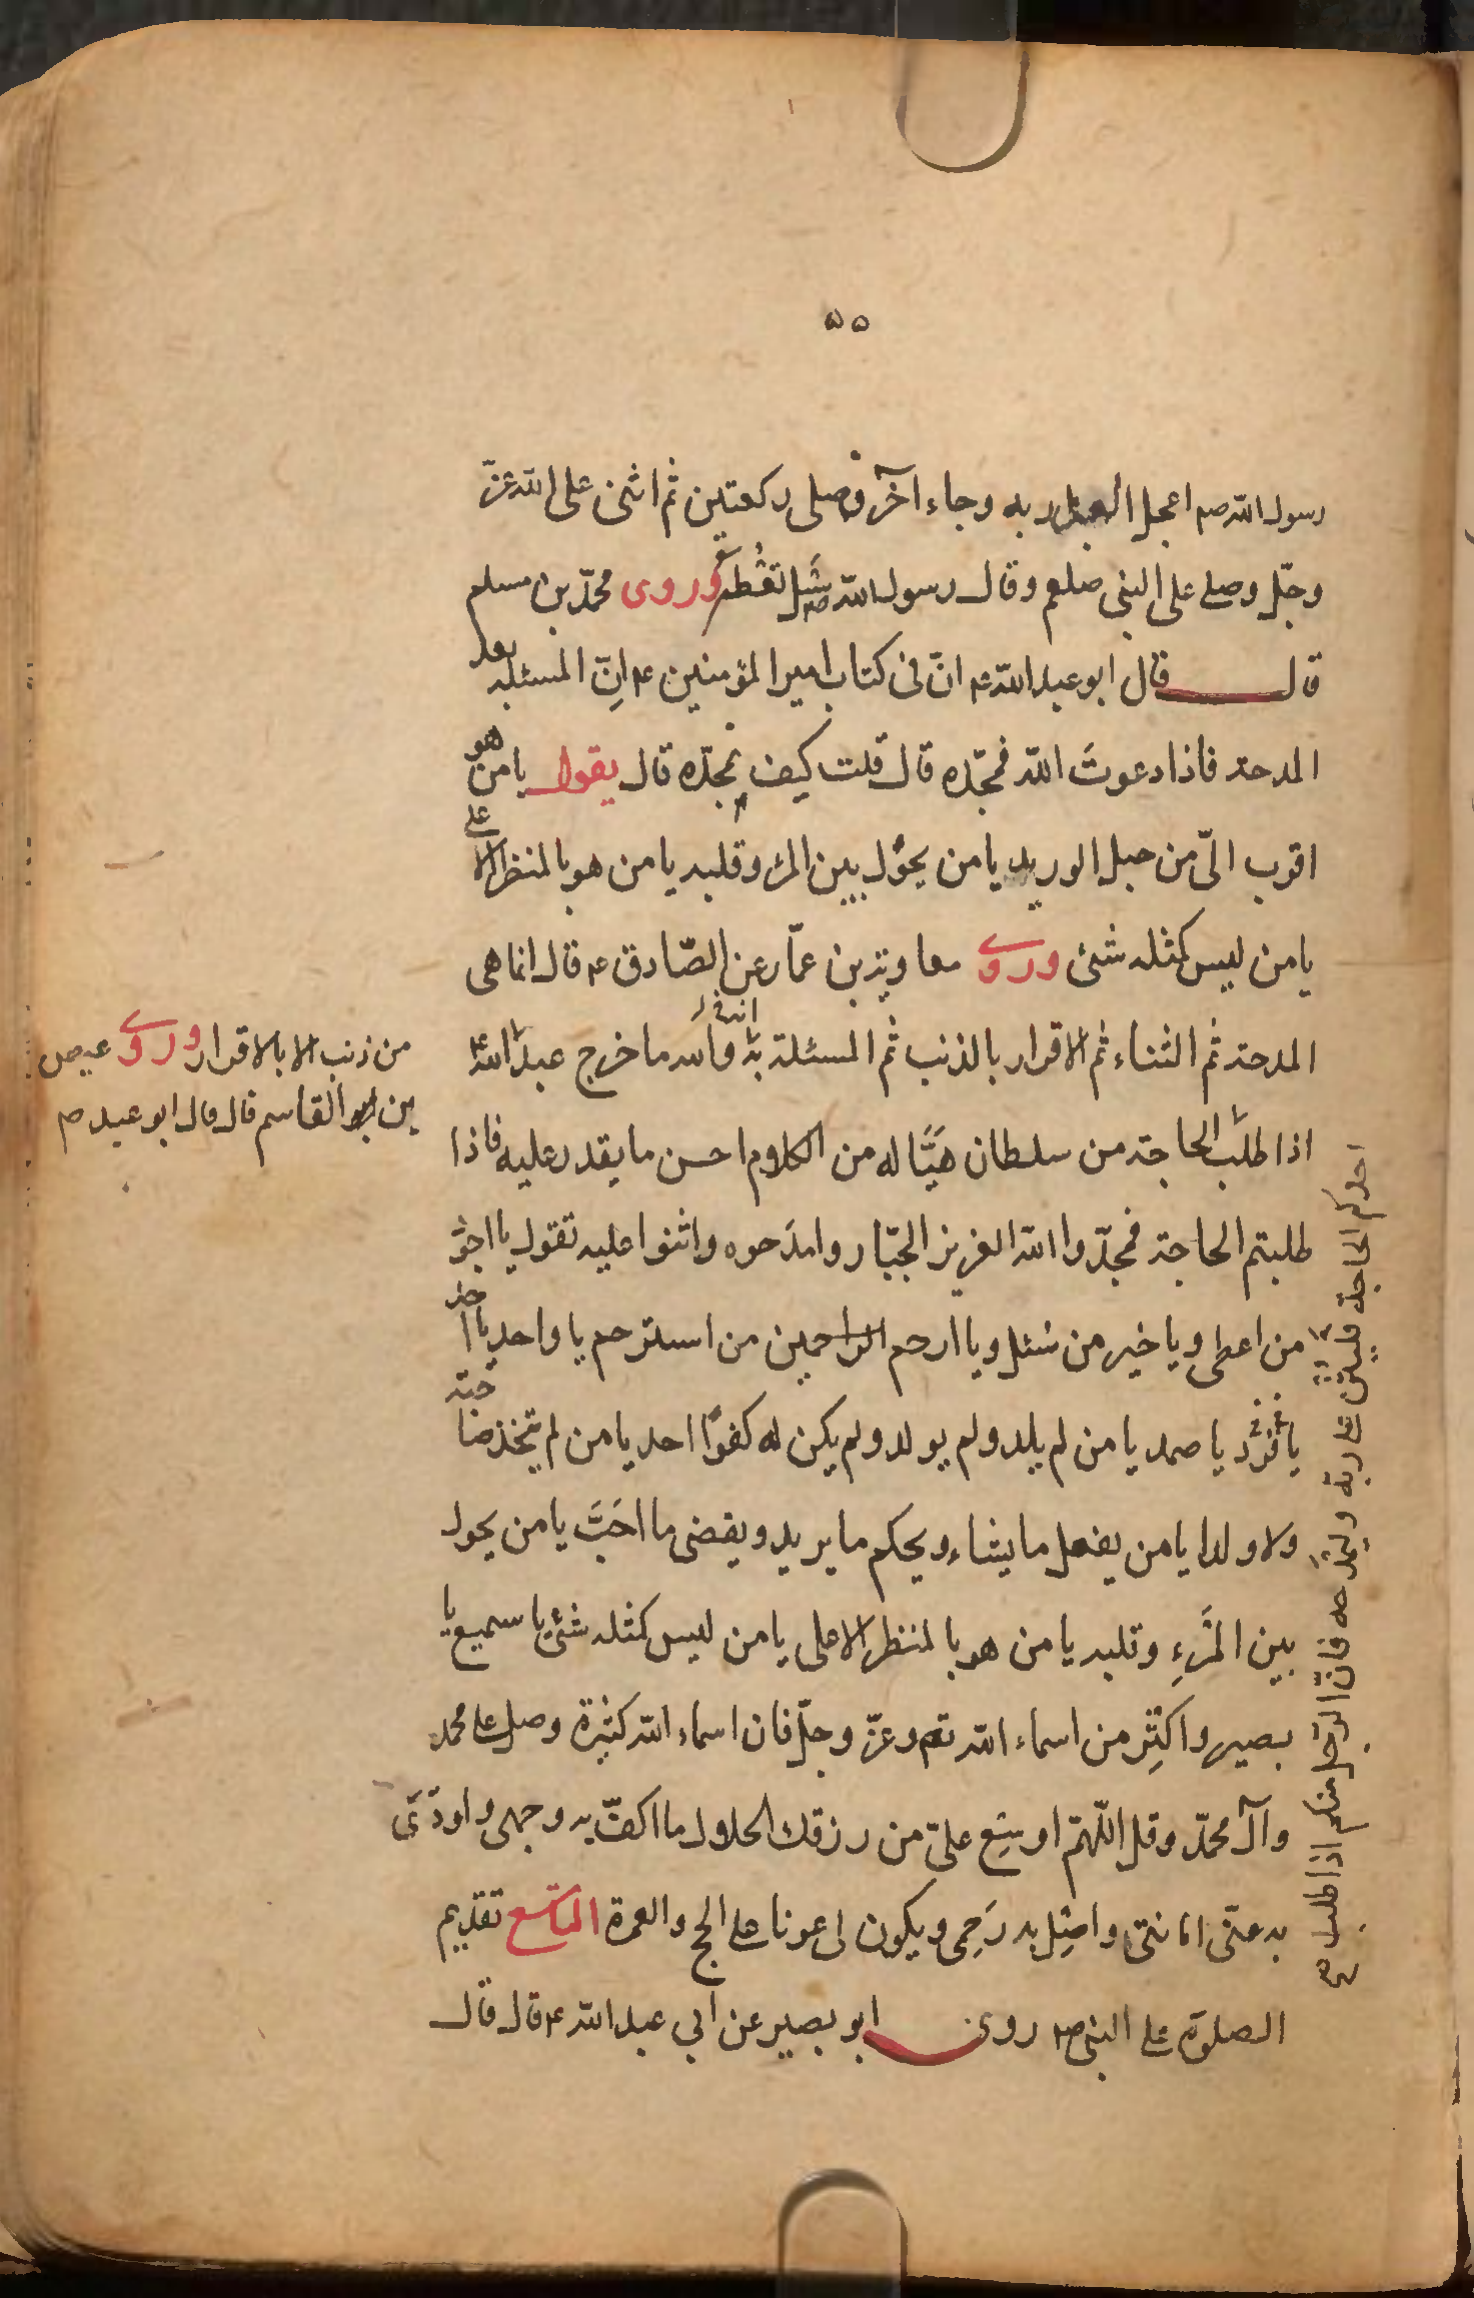 ٥٥
رسول الله صم اعجل العبد ربه وجاء آخر وصلى ركعتين ثم اثنى على الله عزّ
وجلّ وصلى على النبى صلعم وقال رسول الله ص سَل تُعْطه وروى محمّد بن مسلم
قال قال ابو عبد الله ع انّ فى كتاب امير المؤمنين ع انّ المسئلة بعد
المدحة فاذا دعوتَ الله فمجّده قال قلت كيف نمجّده قال يقول يا من هو
اقرب الىّ من حبل الوريد يا من يحوُل بين المرء وقلبه يا من هو بالمنظر الاعلى
يا من ليس كمثله شئ وروى معاوية بن عمّار عن الصّادق ع قال انما هى
المدحة ثم الثناء ثم الاقرار بالذنب ثم المسئلة انه والله ما خرج عبد
من ذنب الا بالاقرار وروى عيص
بن ابو القاسم قال قال ابو عبد
اذا طلب الحاجة من سلطان هَيَّأ له من الكلام احسن ما يقدر عليه فاذا
طلبتم الحاجة فمجّدوا الله العزيز الجبّار وامدَحوه واثنوا عليه تقول يا اجوَد
من اعطى ويا خير من سُئل ويا ارحم الراحمين من استرحم يا واحد يا احد
يا فرد يا صمد يا من لم يلد ولم يولد ولم يكن له كفوًا احد يا من لم يتّخذ صاحبة
ولا ولدا يا من يفعل ما يشاء ويحكم ما يريد ويقضى ما احَبَّ يا من يحول
بين المَرْءِ وقلبه يا من هو بالمنظر الاعلى يا من ليس كمثله شئ يا سميع يا
بصير واكثِر من اسماء الله تعم وعزّ وجلّ فان اسماء الله كثيرة وصل على محمد
وآل محمّد وقل اللّهمّ اوسِع علىّ من رزقك الحلال ما اكفّ به وجهى واودّى
به عنّى امانتى واصِل به رَحِمى ويكون لى عونا على الحج والعمرة التاسع تقديم
الصلوة على النبى ص روى ابو بصير عن ابي عبد الله ع قال قال
احدكم الحاجة فليثن على ربه وليمدحه فانّ الرّجل منكم اذا طلب